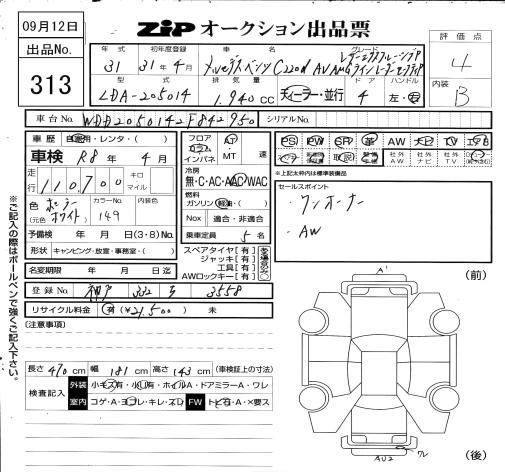 09月12日
ZIP オークション出品票
出品No.
313
評価点
4
内装
B
年式 初年度登録 車名 グレード
31 31年4月 メルセデスベンツ C220d AVAMG
型式 排気量 ドア ハンドル
LDA-205014 1.940cc ディーラー・並行 4 左・右
車台No. WDD2050142F842950 シリアルNo.
車歴 自家用・レンタ・( )
車検 R8年4月
走行 110,700 キロ マイル
色 ポーラーホワイト (元色) カラーNo. 149 内装色
予備検 年 月 日(3・8)No.
形状 キャンピング・放室・事務室・( )
名変期限 年 月 日迄
登録No. 神戸 332 3558
リサイクル料金 有(¥21,500) 未
フロア コラム インパネ AT MT 速
冷房 無・C・AC・AAC・WAC
燃料 ガソリン 軽油・( )
Nox 適合・非適合
乗車定員 5名
スペアタイヤ[有]
ジャッキ[有]
工具[有]
AWロックキー[有]
PS PW SR 革 AW ナビ TV エアB
社外AW 社外ナビ 社外TV
※上記太枠内は標準装備品
セールスポイント
・ワンオーナー
・AW
(前)
A1
(注意事項)
長さ 470cm 幅 181cm 高さ 143cm (車検証上の寸法)
検査記入 外装 小キズ有・小凹有・ホイルA・ドアミラーA・ワレ
室内 コゲ・A・ヨゴレ・キレ・スレ FW トビ石・A・×要ス
AU2 ワレ
(後)
※ご記入の際はボールペンで強くご記入下さい。